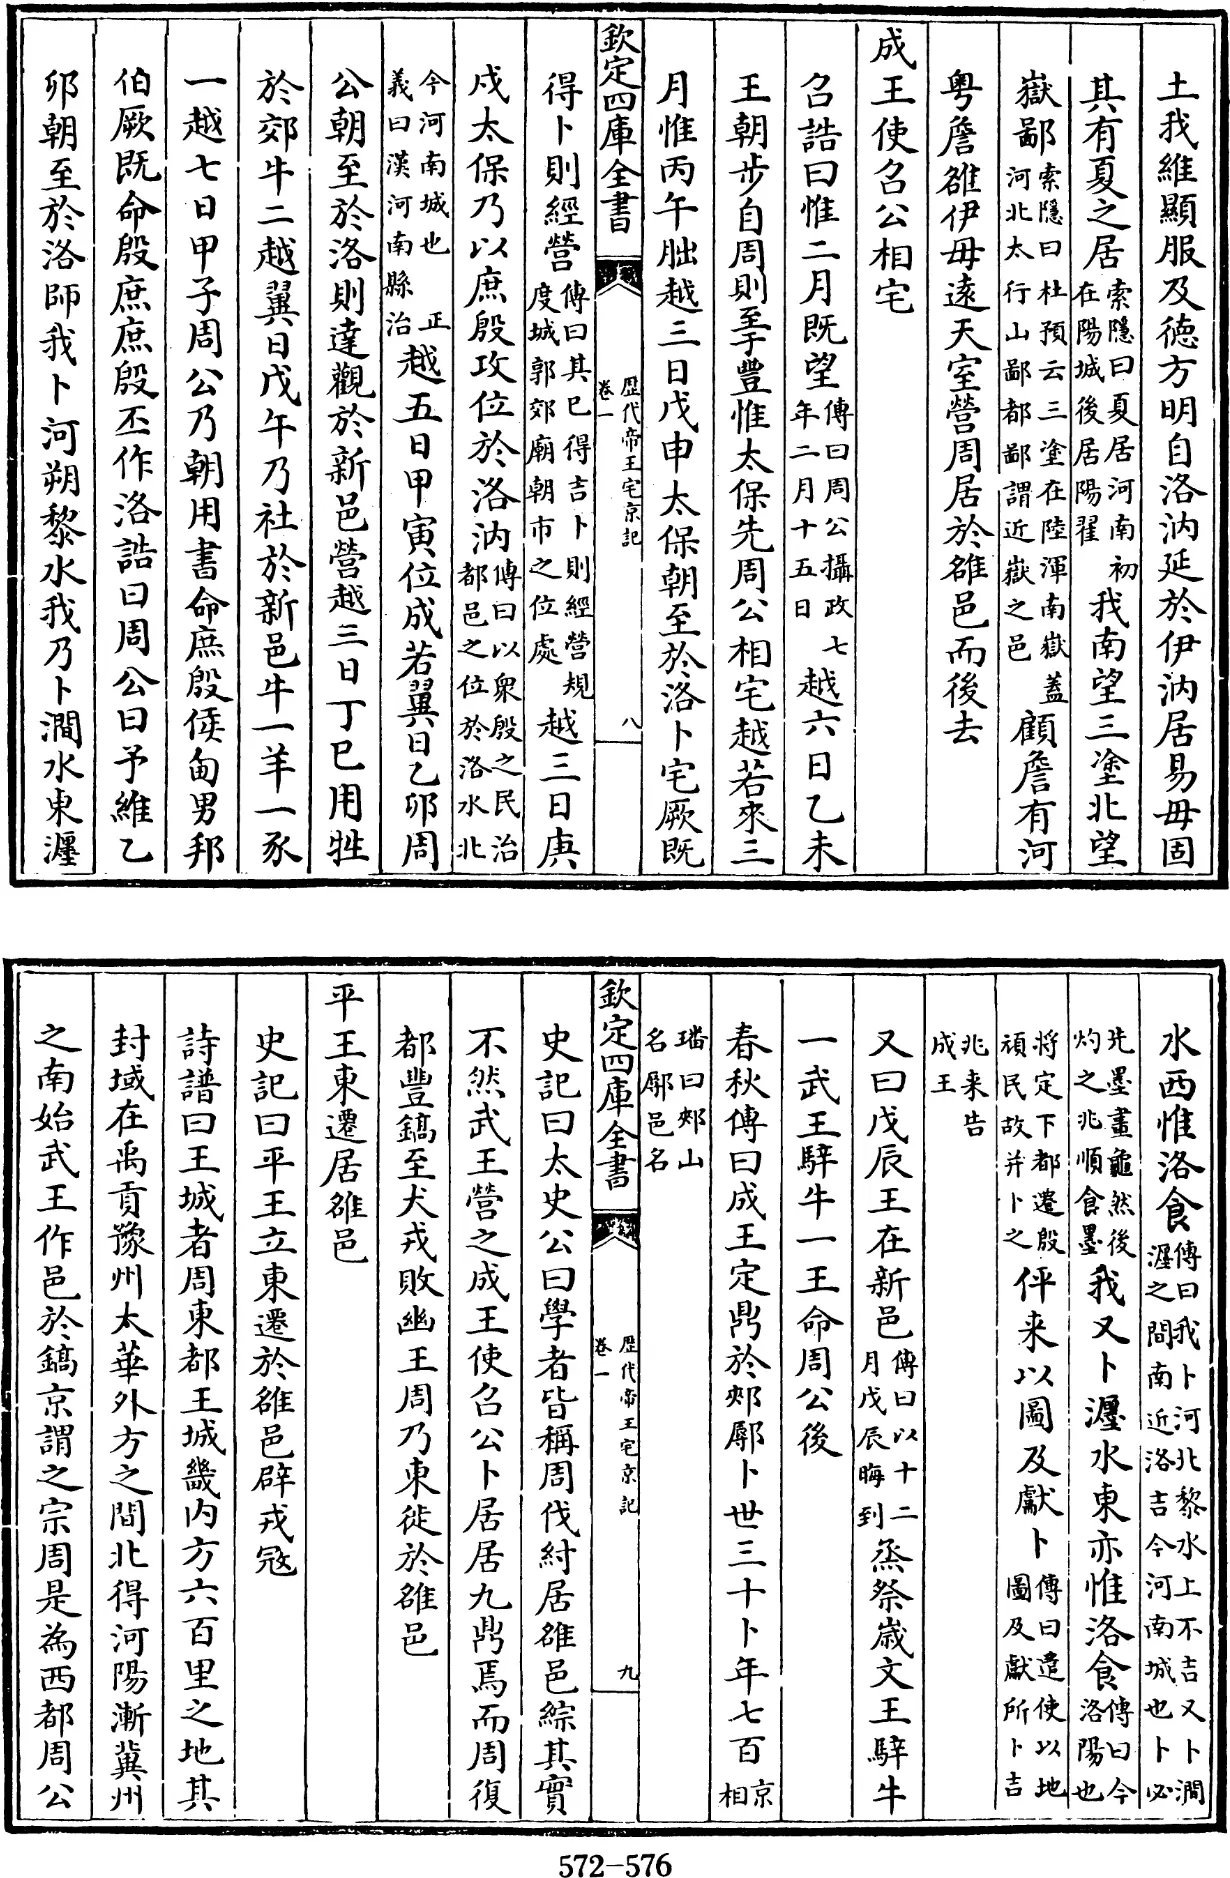 土我維顯服及徳方明自洛汭延於伊汭居易毋固
其有夏之居索隱曰夏居河南初在陽城後居陽翟我南望三塗北望
嶽鄙索隱曰杜預云三塗在陸渾南嶽蓋河北太行山鄙都鄙謂近嶽之邑顧詹有河
粤詹雒伊毋遠天室營周居於雒邑而後去
成王使召公相宅
召誥曰惟二月既望傳曰周公攝政七年二月十五日越六日乙未
王朝步自周則至于豐惟太保先周公相宅越若來三
月惟丙午朏越三日戊申太保朝至於洛卜宅厥既
欽定四庫全書
歴代帝王宅京記
卷一
八
得卜則經營傳曰其已得吉卜則經營規度城郭郊廟朝市之位處越三日庚
戍太保乃以庶殷攻位於洛汭傳曰以衆殷之民治都邑之位於洛水北
今河南城也正義曰漢河南縣治越五日甲寅位成若翼日乙卯周
公朝至於洛則達觀於新邑營越三日丁巳用牲
於郊牛二越翼日戊午乃社於新邑牛一羊一豕
一越七日甲子周公乃朝用書命庶殷侯甸男邦
伯厥既命殷庶庶殷丕作洛誥曰周公曰予維乙
卯朝至於洛師我卜河朔黎水我乃卜澗水東瀍
水西惟洛食傳曰我卜河北黎水上不吉又卜澗瀍之間南近洛吉今河南城也卜必
先墨畫龜然後灼之兆順食墨我又卜瀍水東亦惟洛食傳曰今洛陽也
將定下都遷殷頑民故并卜之伻来以圖及獻卜傳曰遣使以地圖及獻所卜吉
兆来告成王
又曰戊辰王在新邑傳曰以十二月戊辰晦到烝祭歳文王騂牛
一武王騂牛一王命周公後
春秋傳曰成王定鼎於郟鄏卜世三十卜年七百京相
璠曰郟山名鄏邑名
欽定四庫全書
歴代帝王宅京記
卷一
九
史記曰太史公曰學者皆稱周伐紂居雒邑綜其實
不然武王營之成王使召公卜居居九鼎焉而周復
都豐鎬至犬戎敗幽王周乃東徙於雒邑
平王東遷居雒邑
史記曰平王立東遷於雒邑辟戎宼
詩譜曰王城者周東都王城畿内方六百里之地其
封域在禹貢豫州太華外方之間北得河陽漸冀州
之南始武王作邑於鎬京謂之宗周是為西都周公
572-576